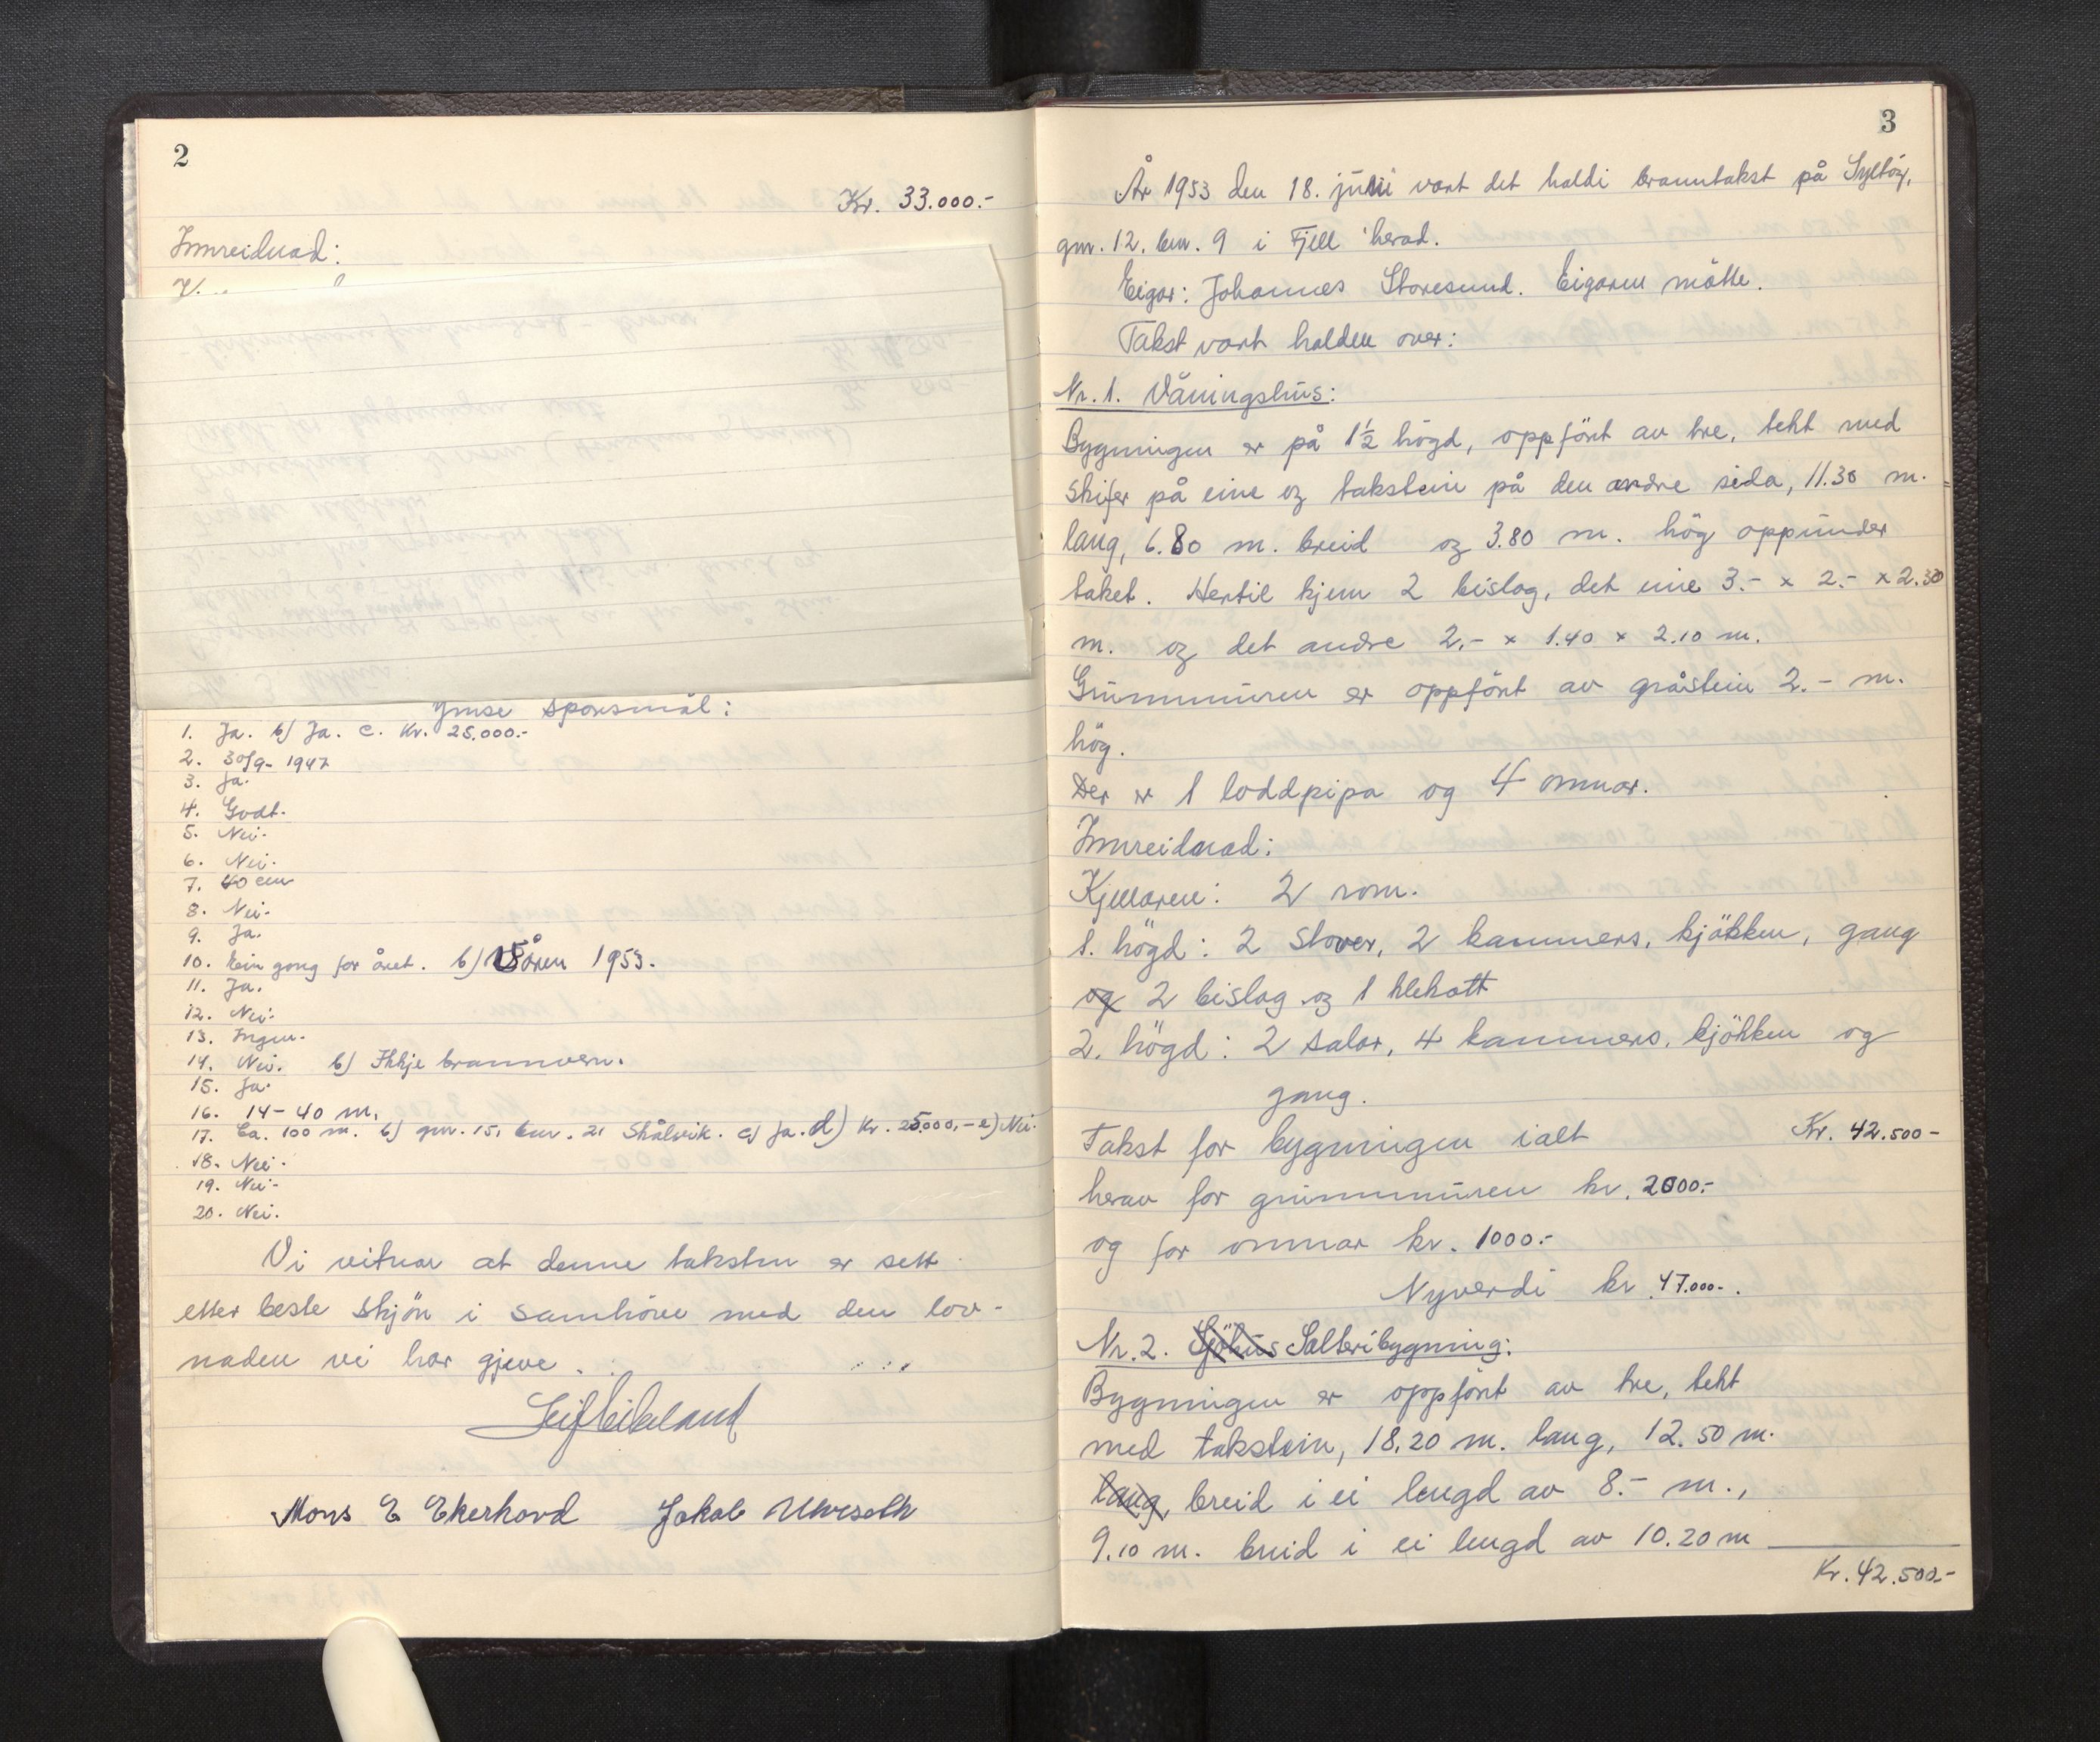 2
Kr. 33.000.-
Innreidnad:
Ymse spørsmål:
1. Ja. b) Ja. c. Kr. 25.000.-
2. 30/9- 1947
3. Ja.
4. Godt.
5. Nei.
6. Nei.
7. 40 cm
8. Nei.
9. Ja.
10. Ein gong for året. b) Våren 1953.
11. Ja.
12. Nei.
13. Ingen.
14. Nei. b) Ikkje brannvern.
15. Ja.
16. 14-40 m.
17. Ca. 100 m. b) gnr. 15, bnr. 21 Skålvik. c) Ja. d) Kr. 25.000.- e) Nei.
18. Nei.
19. Nei.
20. Nei.
Vi vitnar at denne taksten er sett
etter beste skjön i samhöve med den lov-
naden vi har gjeve.
Mons E Ekerhovd Jakob Ulveseth
3
År 1953 den 18. juni vart det haldi branntakst på Syltöy,
gnr. 12. bnr. 9 i Fjell herad.
Eigar: Johannes Storesund. Eigaren mötte.
Takst vart halden over:
Nr. 1. Våningshus:
Bygningen er på 1½ högd, oppfört av tre, tekt med
skifer på eine og takstein på den andre sida, 11.30 m.
lang, 6.80 m. breid og 3.80 m. hög oppunder
taket. Hertil kjem 2 bislag, det eine 3.- x 2.- x 2.30
m. og det andre 2.- x 1.40 x 2.10 m.
Grunnmuren er oppfört av gråstein 2.- m.
hög.
Der er 1 loddpipa og 4 omnar.
Innreidnad:
Kjellaren: 2 rom.
1. högd: 2 stover, 2 kammers, kjökken, gang
og 2 bislag og 1 klekott
2. högd: 2 salar, 4 kammers, kjökken og
gang.
Takst for bygningen ialt Kr. 42.500-
herav for grunnmuren kr. 2000.-
og for omnar kr. 1000.-
Nyverdi kr. 47.000.-.
Nr. 2. Sjöhus Salteribygning:
Bygningen er oppfört av tre, tekt
med takstein, 18.20 m. lang, 12.50 m.
lang, breid i ei lengd av 8.- m.,
9.10 m. breid i ei lengd av 10.20 m
Kr. 42.500.-